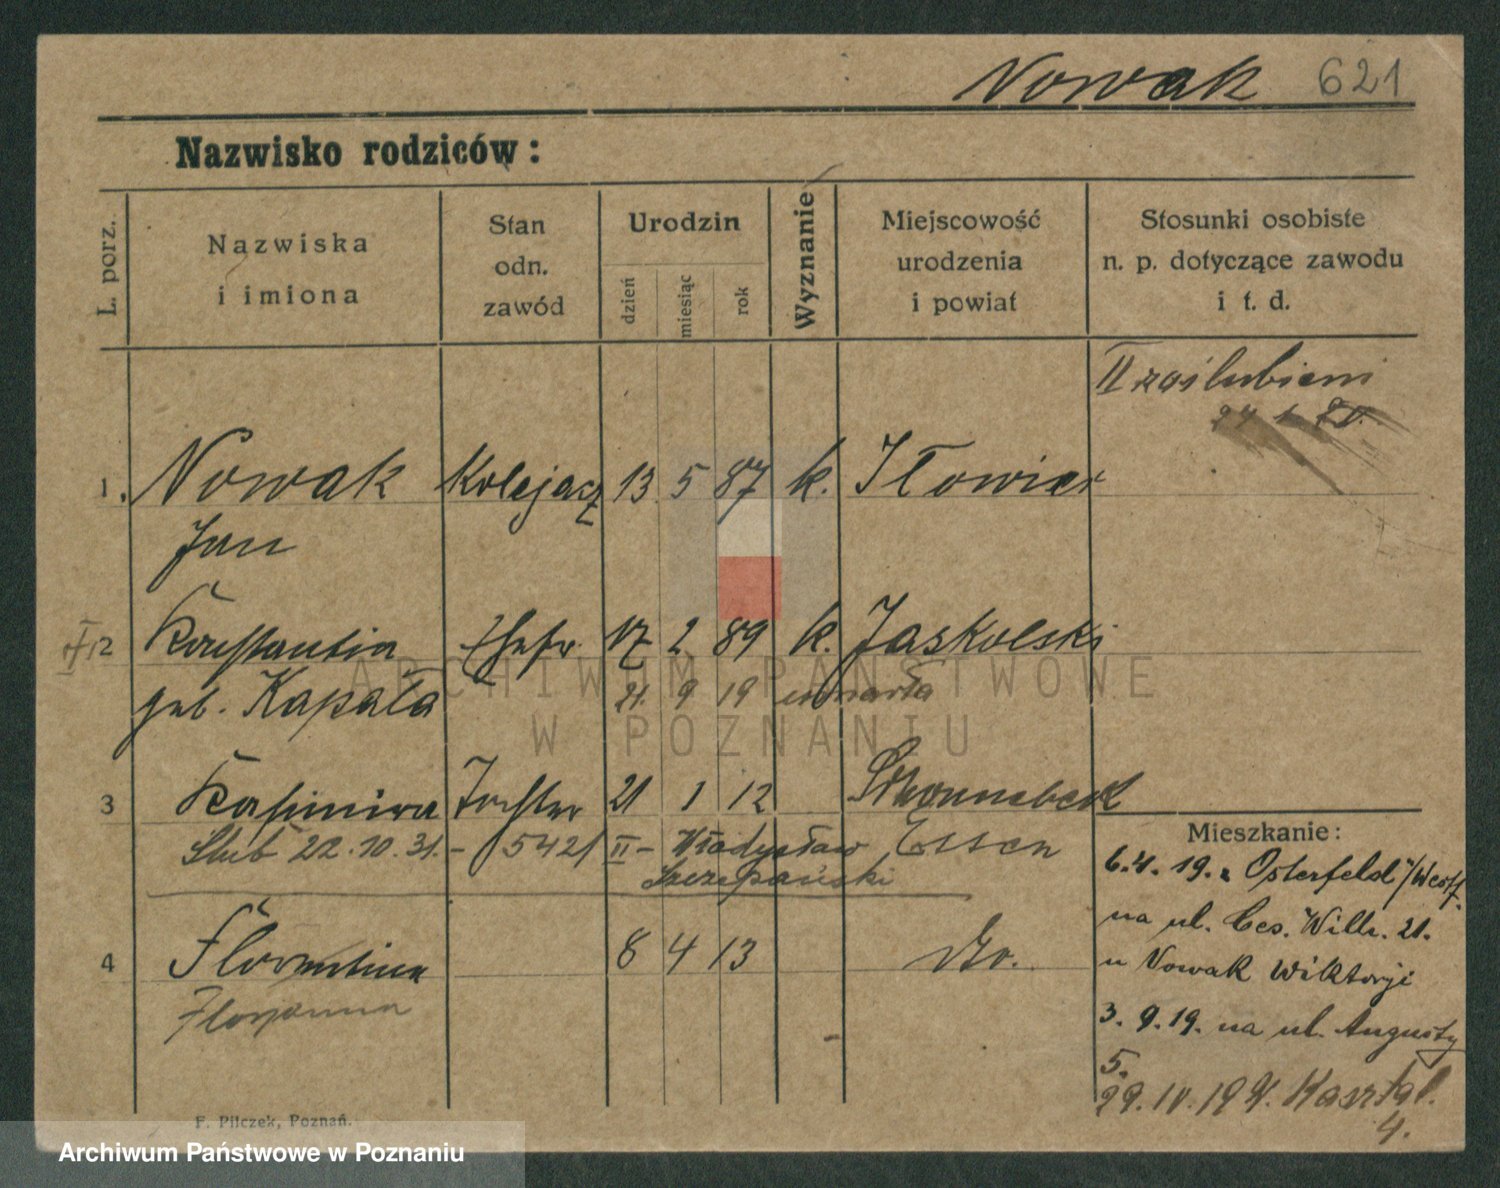 Nowak 621
Nazwisko rodziców:
L. porz.
Nazwiska
i imiona
Stan
odn.
zawód
Urodzin
dzień
miesiąc
rok
Wyznanie
Miejscowość
urodzenia
i powiat
Stosunki osobiste
n. p. dotyczące zawodu
i t. d.
II zaślubieni
24 1 20.
1. Nowak Kolejarz 13 5 87 k. Iłowiec
Jan
2 Konstantia Ehefr. 17 2 89 k. Jaskolski
geb. Kapała 21. 9 19 umarła
3 Kasimira Tochter 21 1 12
Slub 22.10.31. - 5421 II - Władysław Essen
Szczepański
4 Florentina 8 4 13 do.
Florjanna
Mieszkanie:
6.4.19. Osterfeld /Westf.
na ul. Ces. Wilh. 21.
u Nowak Wiktorji
3. 9.19. na ul. Augusty
5.
29. IV. 19
4.
F. Pilczek, Poznań.
ARCHIWUM PAŃSTWOWE
W POZNANIU
Archiwum Państwowe w Poznaniu